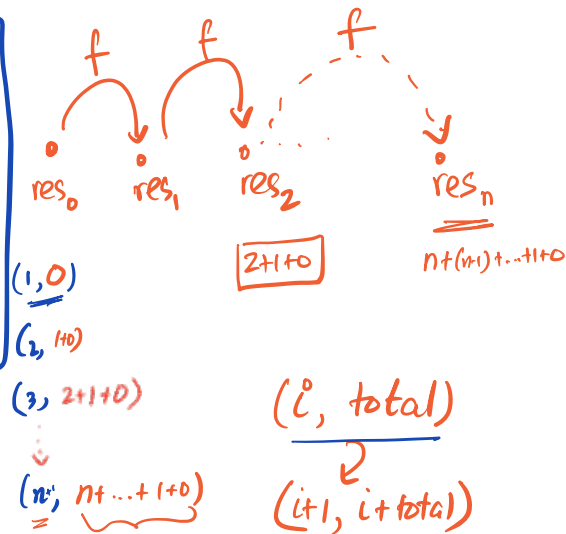 f f f
res₀ res₁ res₂ resₙ
2+1+0
n+(n-1)+...+1+0
(1, 0)
(2, 1+0)
(3, 2+1+0)
(n+1, n+...+1+0)
(i, total)
(i+1, i+total)